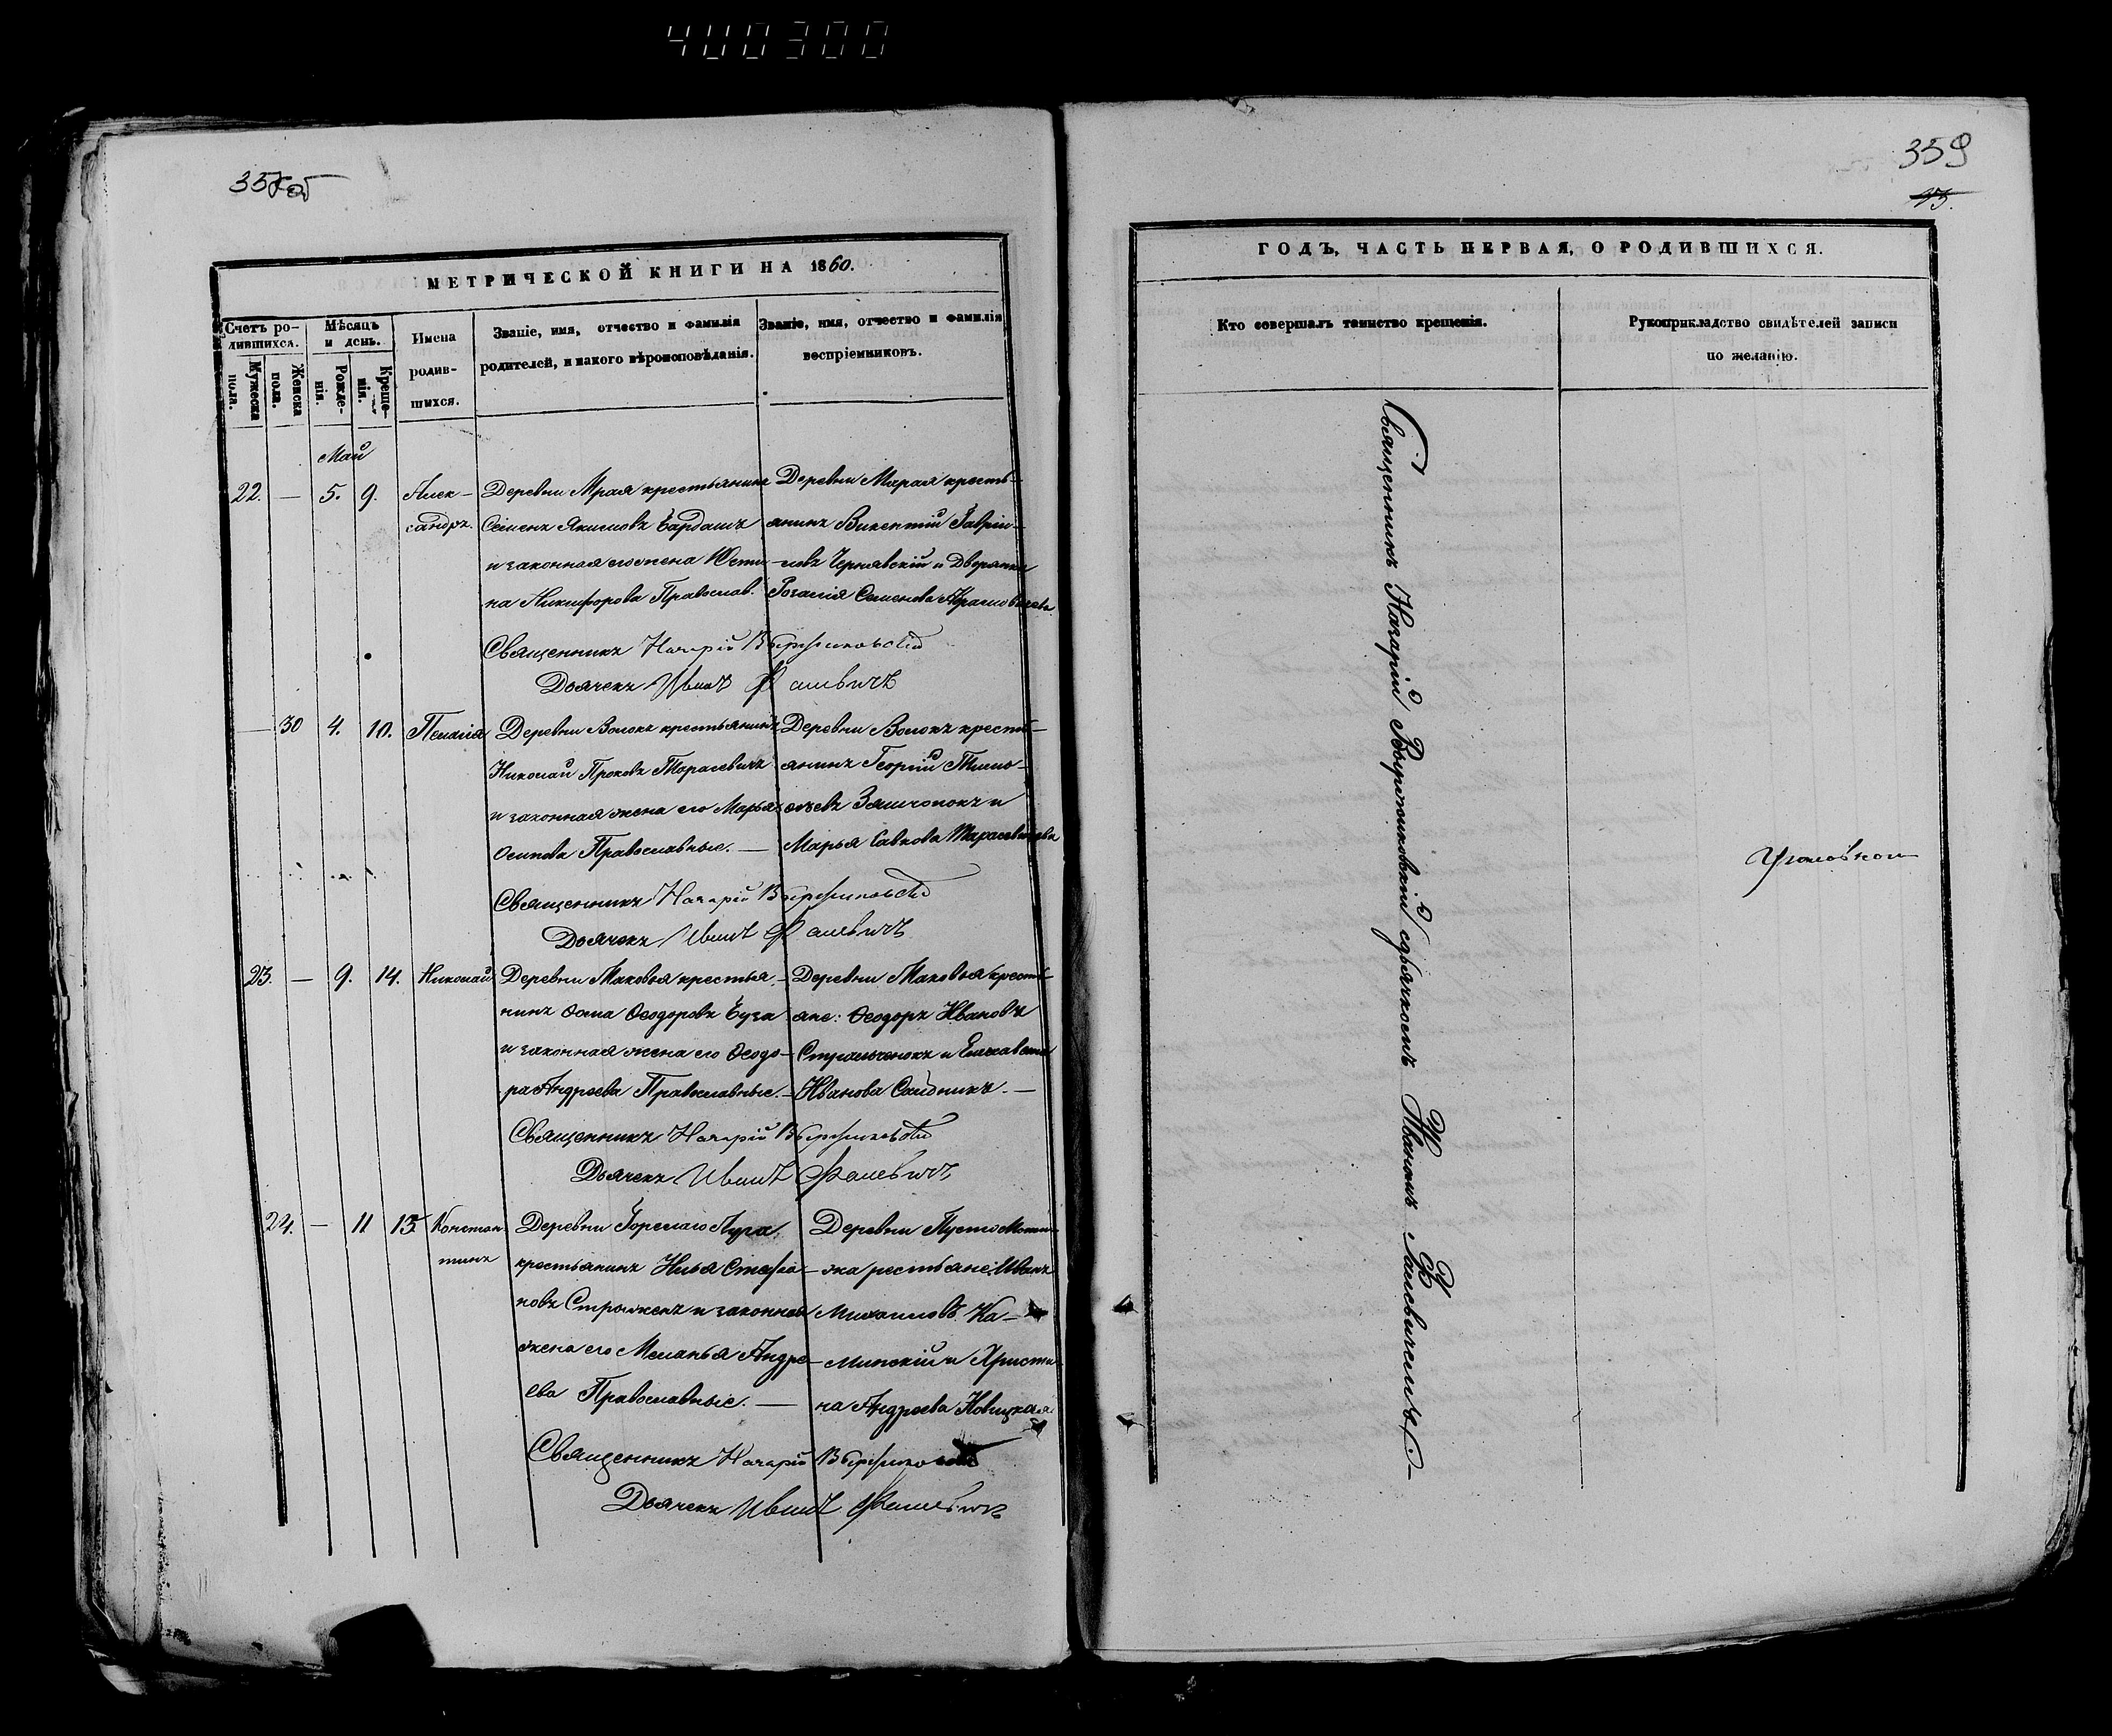 400300
357об
МЕТРИЧЕСКОЙ КНИГИ НА 1860.
Счетъ родившихся.
Мѣсяцъ и день.
Имена родившихся.
Званіе, имя, отчество и фамилія родителей, и какого вѣроисповѣданія.
Званіе, имя, отчество и фамилія воспріемниковъ.
Мужеска пола.
Женска пола.
Рожденія.
Крещенія.
Май
22. — 5. 9.
Алек-
сандръ.
Деревни Мрая крестьянинъ
Семенъ Якимовъ Бардашъ
и законная его жена Юсти-
на Никифорова Православ.
Деревни Марая кресть-
янинъ Викентій Гаврiи-
ловъ Чернявскій и Дворянка
Розалія Семенова Абрамовичева
Священникъ Назарій
Дьячекъ Иванъ Фалевичъ
— 30 4. 10. Пелагія
Деревни Волокъ крестьянинъ
Николай Проковъ Тарасевичъ
и законная жена его Марья
Осипова Православные. —
Деревни Волокъ кресть-
янинъ Георгій Тимо-
Марья Савкова Тарасевичева
Священникъ Назарій
Дьячекъ Иванъ Фалевичъ
23. — 9. 14. Николай
Деревни Маковья крестья-
нинъ Ѳома Ѳеодоровъ Буза
и законная жена его Ѳеодо-
ра Андреева Православные. —
Деревни Маковья кресть-
яне: Ѳеодоръ Ивановъ
Стрѣльченокъ и Елисавета
Иванова —
Священникъ Назарій
Дьячекъ Иванъ Фалевичъ
24. — 11 15. Констан-
тинъ
Деревни Горелаго Луга
крестьянинъ Илья Стефа-
новъ и законная
жена его Меланья Андре-
ева Православные. —
Деревни
крестьяне: Иванъ
Михаиловъ Ка-
минскій и Христи-
на Андреева Новицкая
Священникъ Назарій
Дьячекъ Иванъ Фалевичъ
359
ГОДЪ, ЧАСТЬ ПЕРВАЯ, О РОДИВШИХСЯ.
Кто совершалъ таинство крещенія.
Рукоприкладство свидѣтелей записи
по желанію.
Священникъ Назарій съ дьячкомъ Иваномъ Фалевичемъ